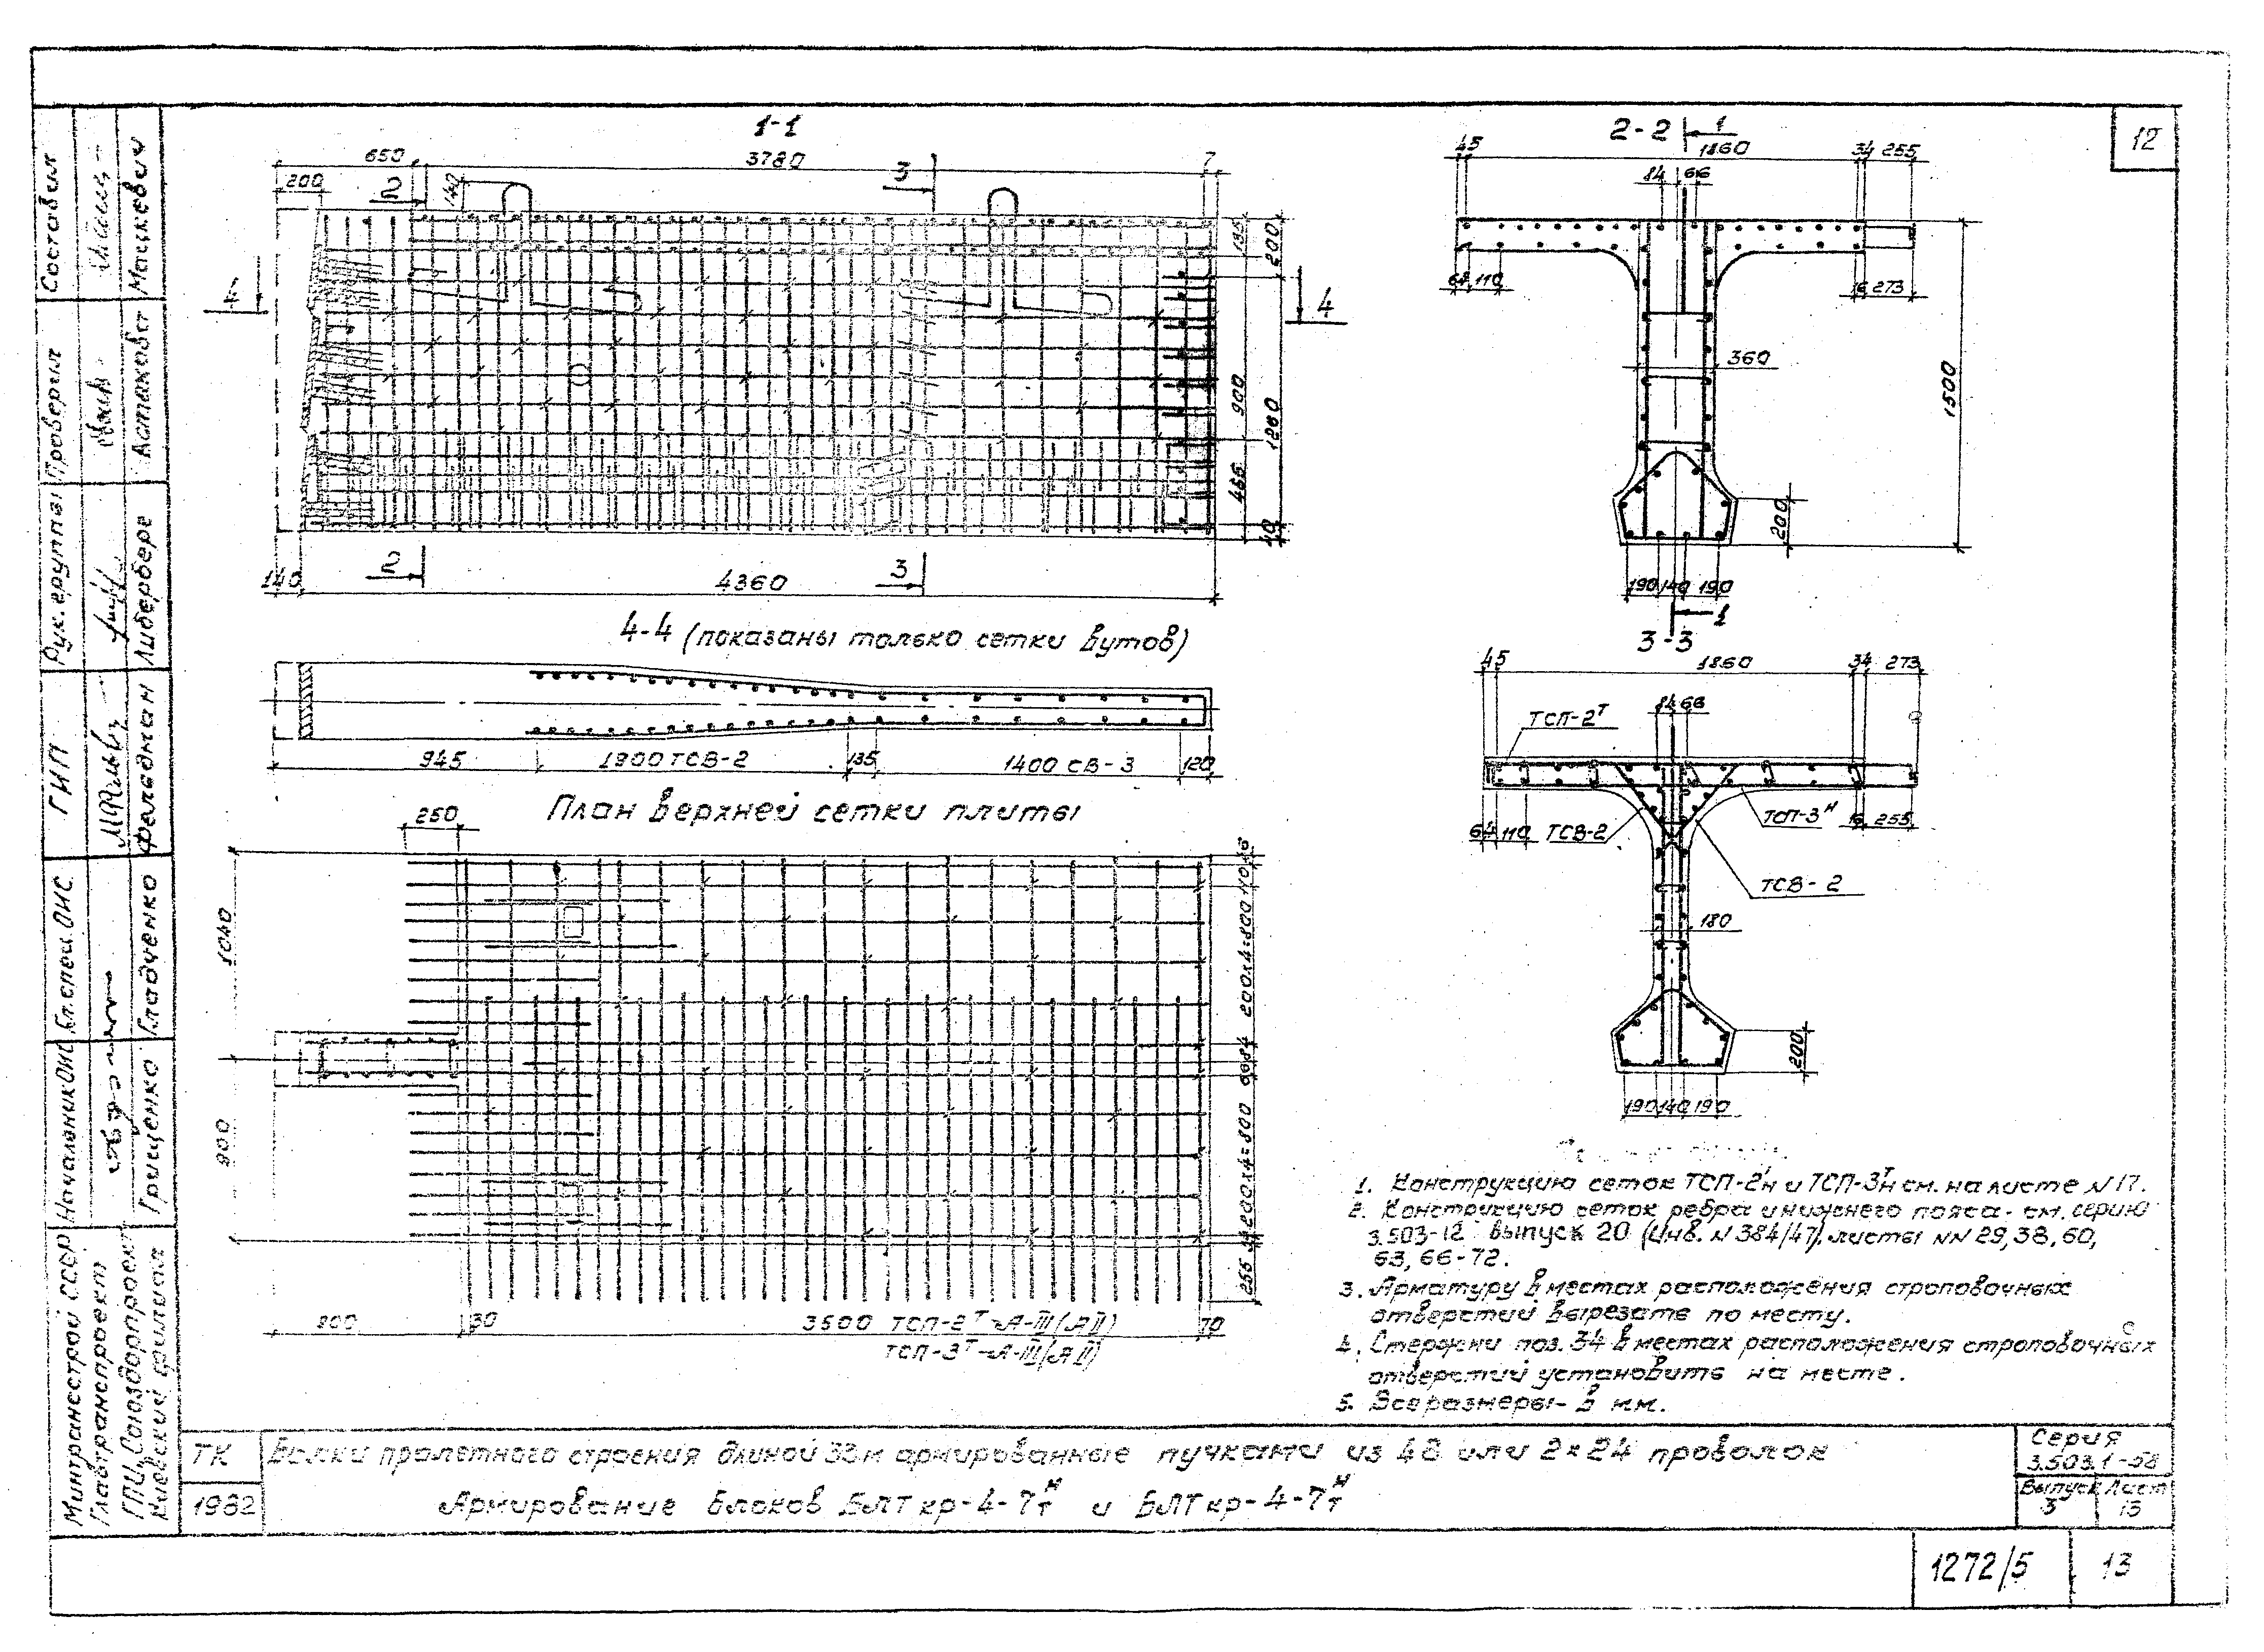 12
1-1
650
3780
7
200
2
140
3
4
135
200
900
1260
465
10
4
2
3
140
4360
4-4 (показаны только сетки вутов)
945
1900 ТСВ-2
135
1400 СВ-3
120
План верхней сетки плиты
250
1040
900
200х4=800
66 84
200х4=800
255
800
30
3500 ТСП-2Т-А-III (АII)
ТСП-3Т-А-III (АII)
70
2-2
1
45
1860
34 255
84 66
64 110
16 273
360
1500
200
190 140 190
1
3-3
45
1860
34 273
84 66
ТСП-2Т
64 110
ТСВ-2
ТСП-3Н
16 255
ТСВ-2
180
200
190 140 190
1. Конструкцию сеток ТСП-2 Т Н и ТСП-3 Т Н см. на листе N 17.
2. Конструкцию сеток ребра и нижнего пояса - см. серию
3.503-12 выпуск 20 (Инв. N 384/47), листы NN 29, 38, 60,
63, 66-72.
3. Арматуру в местах расположения строповочных
отверстий вырезать по месту.
4. Стержни поз. 34 в местах расположения строповочных
отверстий установить на месте.
5. Все размеры - в мм.
ТК
1982
Балки пролетного строения длиной 33м армированные пучками из 48 или 2х24 проволок
Армирование блоков БЛТкр-4-7 Н Т и БЛТкр-4-7 Н Т
Серия
3.503.1-58
Выпуск
3
Лист
13
1272/5
13
Составил
Мацкевич
Проверил
Астахова
Рук. группы
Либерберг
ГИП
Фаледман
Гл. спец. ОИС
Гладченко
Начальник ОИС
Гриценко
Минтрансстрой СССР
Главтранспроект
ГПИ Союздорпроект
Киевский филиал